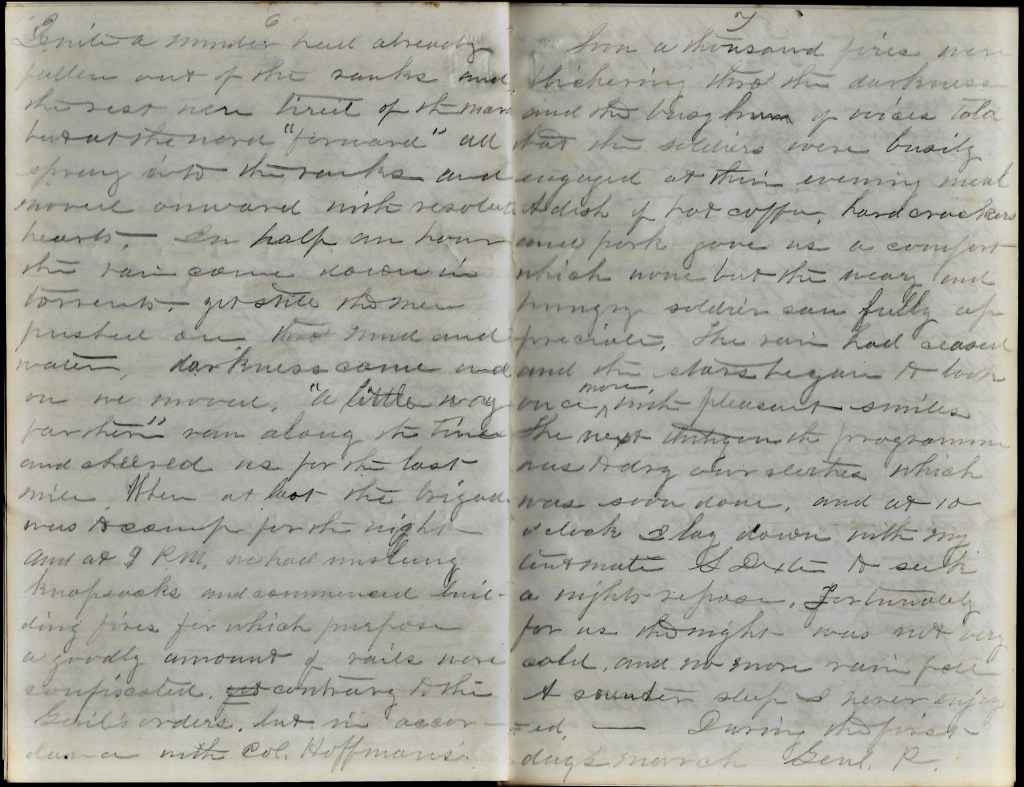 6
Quite a number had already
fallen out of the ranks and
the rest were tired of the march
but at the word "forward" all
sprang into the ranks and
moved onward with resolute
hearts. — In half an hour
the rain came down in
torrents, yet still the men
pushed on, thro mud and
water, darkness came and
on we moved. "A little way
farther" ran along the lines
and cheered us for the last
mile When at last the brigade
was to camp for the night
and at 9 P.M. we had unslung
knapsacks and commenced buil-
ding fires for which purpose
a goodly amount of rails were
confiscated. contrary to the
Genl's orders, but in accor-
dance with Col. Hoffmans.
7
Soon a thousand fires were
flickering thro the darkness
and the busy hum of voices told
that the soldiers were busily
engaged at their evening meal
A dish of hot coffee, hard crackers
and pork gave us a comfort
which none but the weary and
hungry soldier can fully ap
preciate. The rain had ceased
and the stars began to look
once more, with pleasant smiles
The next thing on the programme
was to dry our clothes which
was soon done, and at 10
o'clock I lay down with my
tent mate S Dexter to seek
a nights repose. Fortunately
for us the night was not very
cold, and no more rain fell
A sounder sleep I never enjoy
-ed, — During the first
day's march Genl. R.